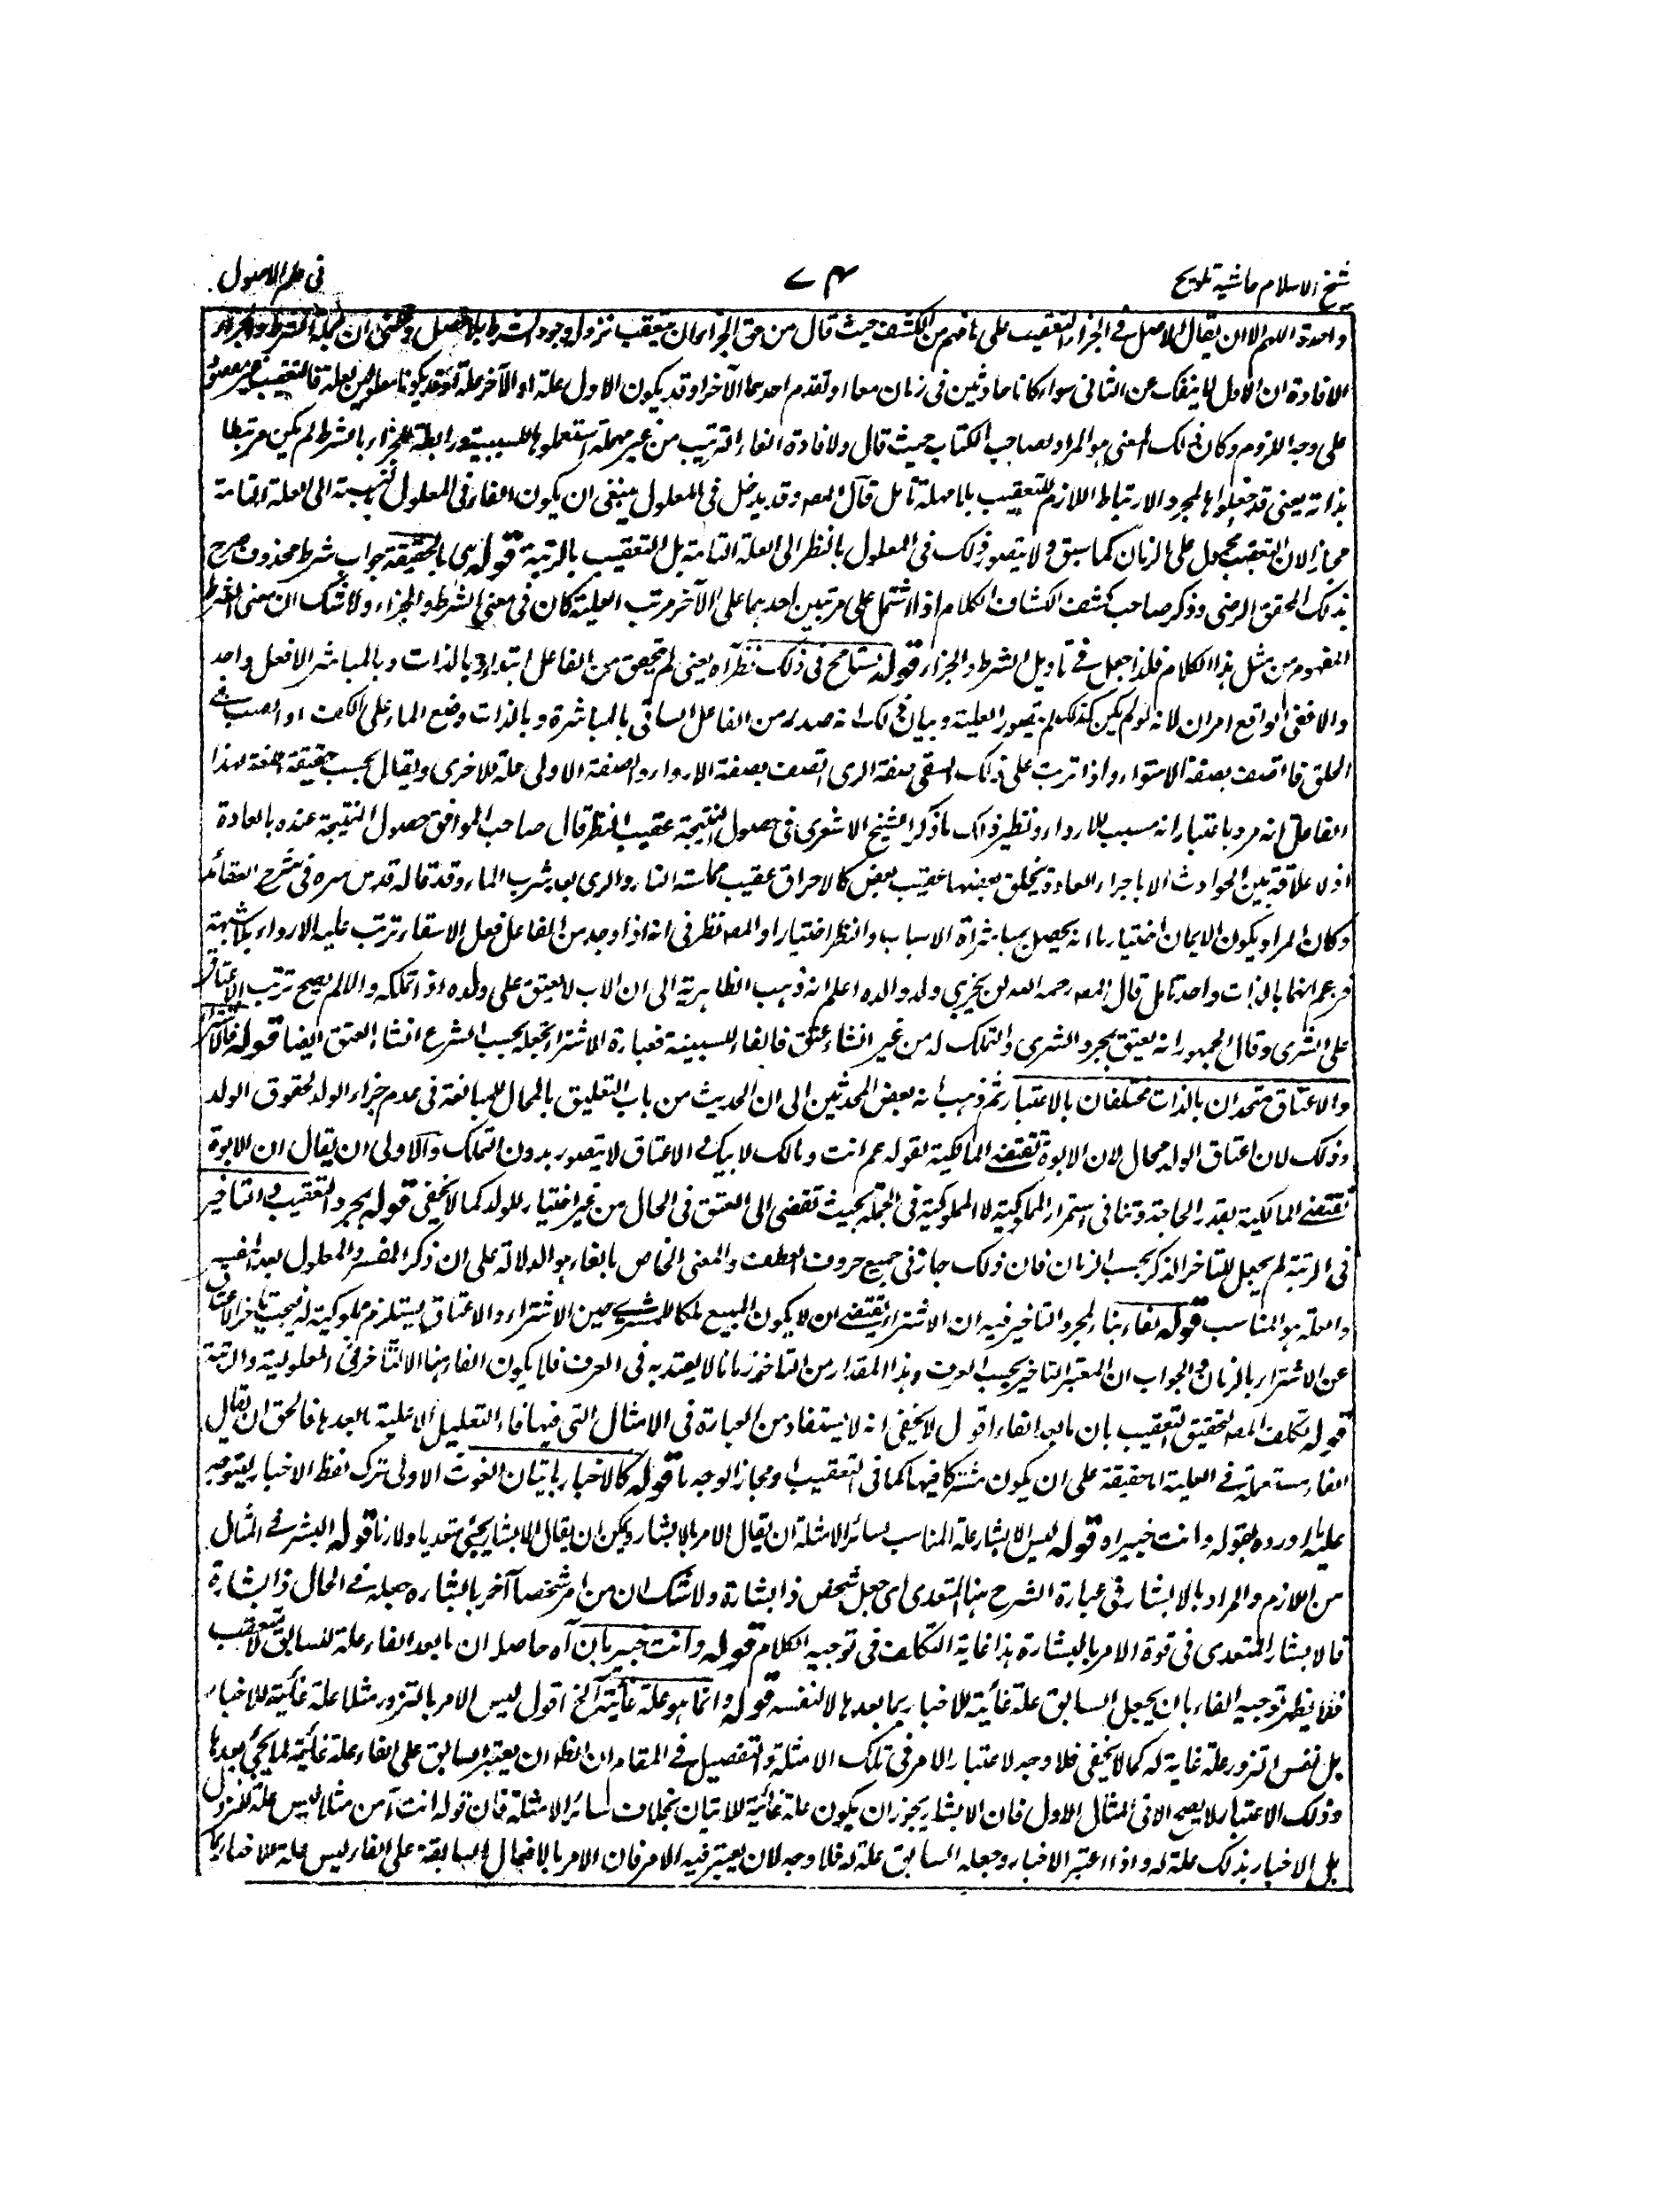 شيخ الاسلام حاشية تلويح
٧٤
فى علم الاصول
واحدة اللهم الا ان يقال الاصل فى الجزاء التعقيب على ما فهم من الكشف حيث قال من حق الجزاء ان يتعقب نزوله وجود الشرط بلا فصل ان كلمة الشرط والجزاء
الافادة ان الاول لا ينفك عن الثانى سواء كانا حادثين فى زمان معا او تقدم احدهما الآخر او قد يكون الاول علة او الآخر علة او قد يكونا معلولين لعلة فالتعقيب غير
على وجه اللزوم وكان ذلك المعنى هو المراد لصاحب الكتاب حيث قال ولافادة الفاء الترتيب من غير مهلة استعملوها للسببية ورابطة للجزاء بالشرط لم يكن مرتبطا
بذاته يعنى قد جعلوا ها لمجرد الارتباط اللازم للتعقيب بلا مهلة تأمل قال المصـ وقد يدخل فى المعلول ينبغى ان يكون الفاء فى المعلول بالنسبة الى العلة التامة
مجازا لان التعقيب محمول على الزمان كما سبق ولا يتصور ذلك فى المعلول بالنظر الى العلة التامة بل التعقيب بالرتبة قوله هى بالحقيقة جواب شرط محذوف صرح
بذلك المحقق الرضى وذكر صاحب كشف الكشاف الكلام اذا اشتمل على مرتبين احدهما على الآخر مرتب العلية كان فى معنى الشرط والجزاء ولا شك ان معنى الشرط
المفهوم من مثل هذا الكلام فلذا جعل فى تاويل الشرط والجزاء قوله تسامح فى ذلك نظرا آه يعنى لم تحقق من الفاعل ابتداء بالذات وبالمباشر الا فعل واحد
والا ففى الواقع امران لانه لو لم يكن كذلك لم يتصور العلية وبيان ذلك انه صدر من الفاعل الساقى بالمباشرة وبالذات وضع الماء على الكف او الصب فى
الحلق فاتصف بصفة الاستواء واذا ترتب على ذلك السقى صفة الرى اتصف بصفة الارواء والصفة الاولى علة للاخرى ويقال بحسب حقيقة اللغة لهذا
الفاعل انه مرو باعتبار انه مسبب للارواء ونظير ذلك ما ذكر الشيخ الاشعرى فى حصول النتيجة عقيب النظر قال صاحب المواقف حصول النتيجة عنده بالعادة
اذ لا علاقة بين الحوادث الا باجراء العادة يخلق بعضها عقيب بعض كالاحراق عقيب مماسته النار والرى بعد شرب الماء وقد قاله قدس سره فى شرح العقائد
وكان المراد يكون الايمان اختياريا انه يحصل بمباشرة الاسباب والنظر اختيارا والمصـ نظر فى انه اذا وجد من الفاعل فعل الاسقاء ترتب عليه الارواء بلا شبهة
فزعم انهما بالذات واحد تأمل قال المصـ رحمه الله لن يجزى ولد والده اعلم انه ذهب الظاهرية الى ان الاب لا يعتق على ولده اذا تملكه والا لم يصح ترتب الاعتاق
على الشرى وقال الجمهور انه يعتق بمجرد الشرى والتملك له من غير انشاء عتق فالفاء للسببية فعبارة الاشتراء تجعله بحسب الشرع انشاء العتق ايضا قوله
والاعتاق متحدان بالذات مختلفان بالاعتبار ثم ذهب انه بعض المحدثين الى ان الحديث من باب التعليق بالمحال للمبالغة فى عدم جزاء الولد لحقوق الولد
وذلك لان اعتاق الولد محال لان الابوة تقتضى المالكية لقوله عم انت ومالك لابيك والاعتاق لا يتصور بدون التملك والاولى ان يقال ان الابوة
تقتضى المالكية بقدر الحاجة وتنافى استمرار المملوكية لا المملوكية فى الجملة بحيث تفضى الى العتق فى الحال من غير اختيار للولد كما لا يخفى قوله بمجرد التعقيب والتاخير
فى الرتبة لم يجعل للتاخر الذكر بحسب الزمان فان ذلك جار فى جميع حروف العطف والمعنى الخاص بالفاء هو الدلالة على ان ذكر المفسر والمعلول بعد المفسر
والعلة هو المناسب قوله بفاء بناء لمجرد التاخير فيه ان الاشتراء يقتضى ان لا يكون المبيع ملكا للمشترى حين الاشتراء والاعتاق يستلزم مملوكية له فيجب تاخر الاعتاق
عن الاشتراء بالزمان والجواب ان المعتبر التاخير بحسب العرف وهذا المقدار من التاخر زمانا لا يعتد به فى العرف فلا يكون الفاء هنا الا التاخر فى المعلولية والرتبة
قوله تكلف المصـ لتحقيق التعقيب بان ما بعد الفاء اقول لا يخفى انه لا يستفاد من العبارة فى الامثال التى فيها فاء التعليل الا علية ما بعدها فالحق ان يقال
الفاء مستعملة فى العلية اما حقيقة على ان يكون مشتركا فيها كما فى التعقيب او مجازا لوجه ما قوله كالاخبار باتيان الغوث الاولى ترك لفظ الاخبار ليتوجه
عليه ما اورده بقوله وانت خبير اه قوله ليس الابشار علة المناسب لسائر الامثلة ان يقال الامر بالابشار ويمكن ان يقال الابشار يجئ متعديا ولازما قوله ابشر فى المثال
من اللازم والمراد بالابشار فى عبارة الشرح هنا المتعدى اى جعل شخص ذا بشارة ولا شك ان من امر شخصا آخر بالبشاره جعله فى الحال ذا بشارة
فالابشار المتعدى فى قوة الامر بالبشارة هذا غاية التكلف فى توجيه الكلام قوله وانت خبير بان آه حاصله ان ما بعد الفاء علة للسابق لا تعقب
فلا يظهر توجيه الفاء بان يجعل السابق علة غائية للاخبار بما بعدها لا لنفسه قوله وانما هو علة غائية الخ اقول ليس الامر بالتزود مثلا علة غائية للاخبار
بل نفس التزود علة غاية له كما لا يخفى فلا وجه لاعتبار الامر فى تلك الامثلة والتفصيل فى المقام ان الظ ان يعتبر السابق على الفاء علة غائية لما يجئ بعدها
وذلك الاعتبار لا يصح الا فى المثال الاول فان الابشار يجوز ان يكون علة غائية للاتيان بخلاف سائر الامثلة فان قوله انت آمن مثلا ليس علة للنزول
بل الاخبار بذلك علة له واذا اعتبر الاخبار وجعله السابق علة له فلا وجه لان يعتبر فيه الامر فان الامر بالافعال السابقة على الفاء ليس علة للاخبار